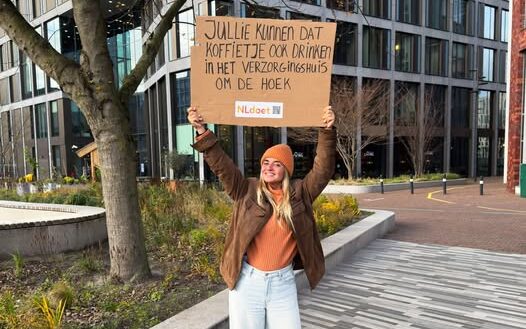 JULLIE KUNNEN DAT
KOFFIETJE OOK DRINKEN
IN HET VERZORGINGSHUIS
OM DE HOEK
NLdoet